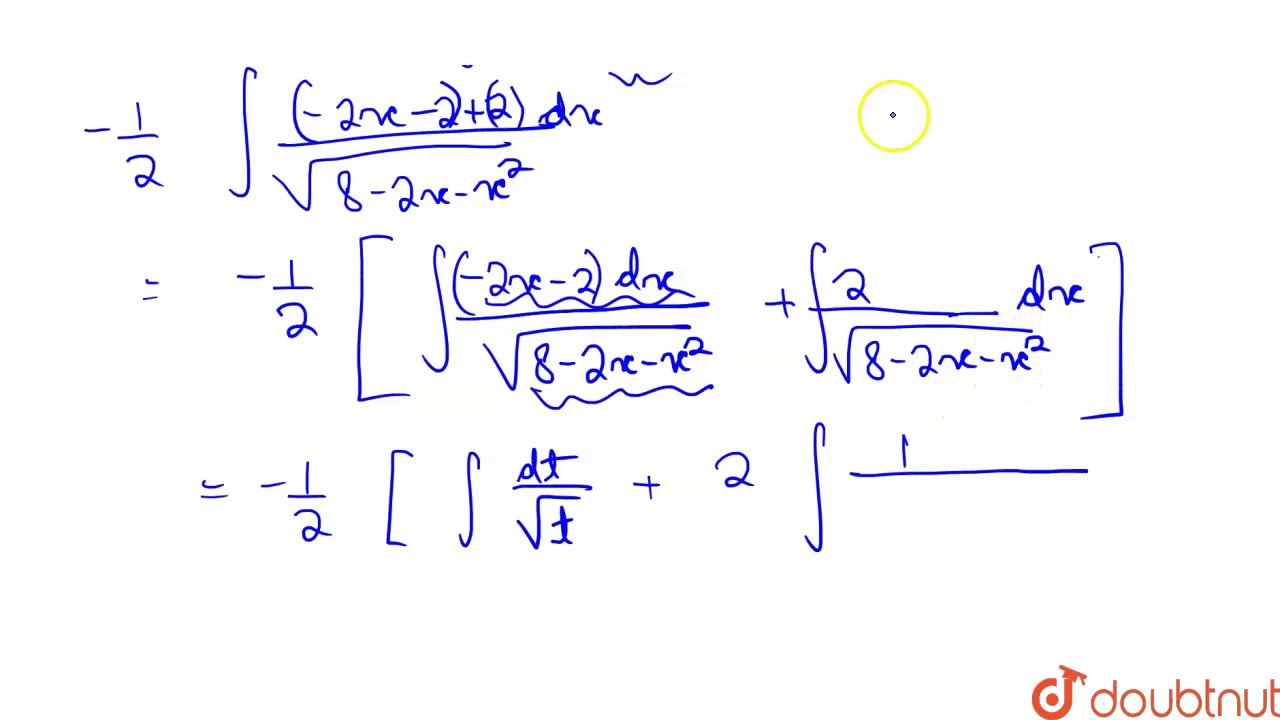 -1/2 ∫ (-2x-2)+(2) dx / √(8-2x-x²)
= -1/2 [ ∫ (-2x-2) dx / √(8-2x-x²) + ∫ 2 / √(8-2x-x²) dx ]
= -1/2 [ ∫ dt/√t + 2 ∫ 1/
doubtnut